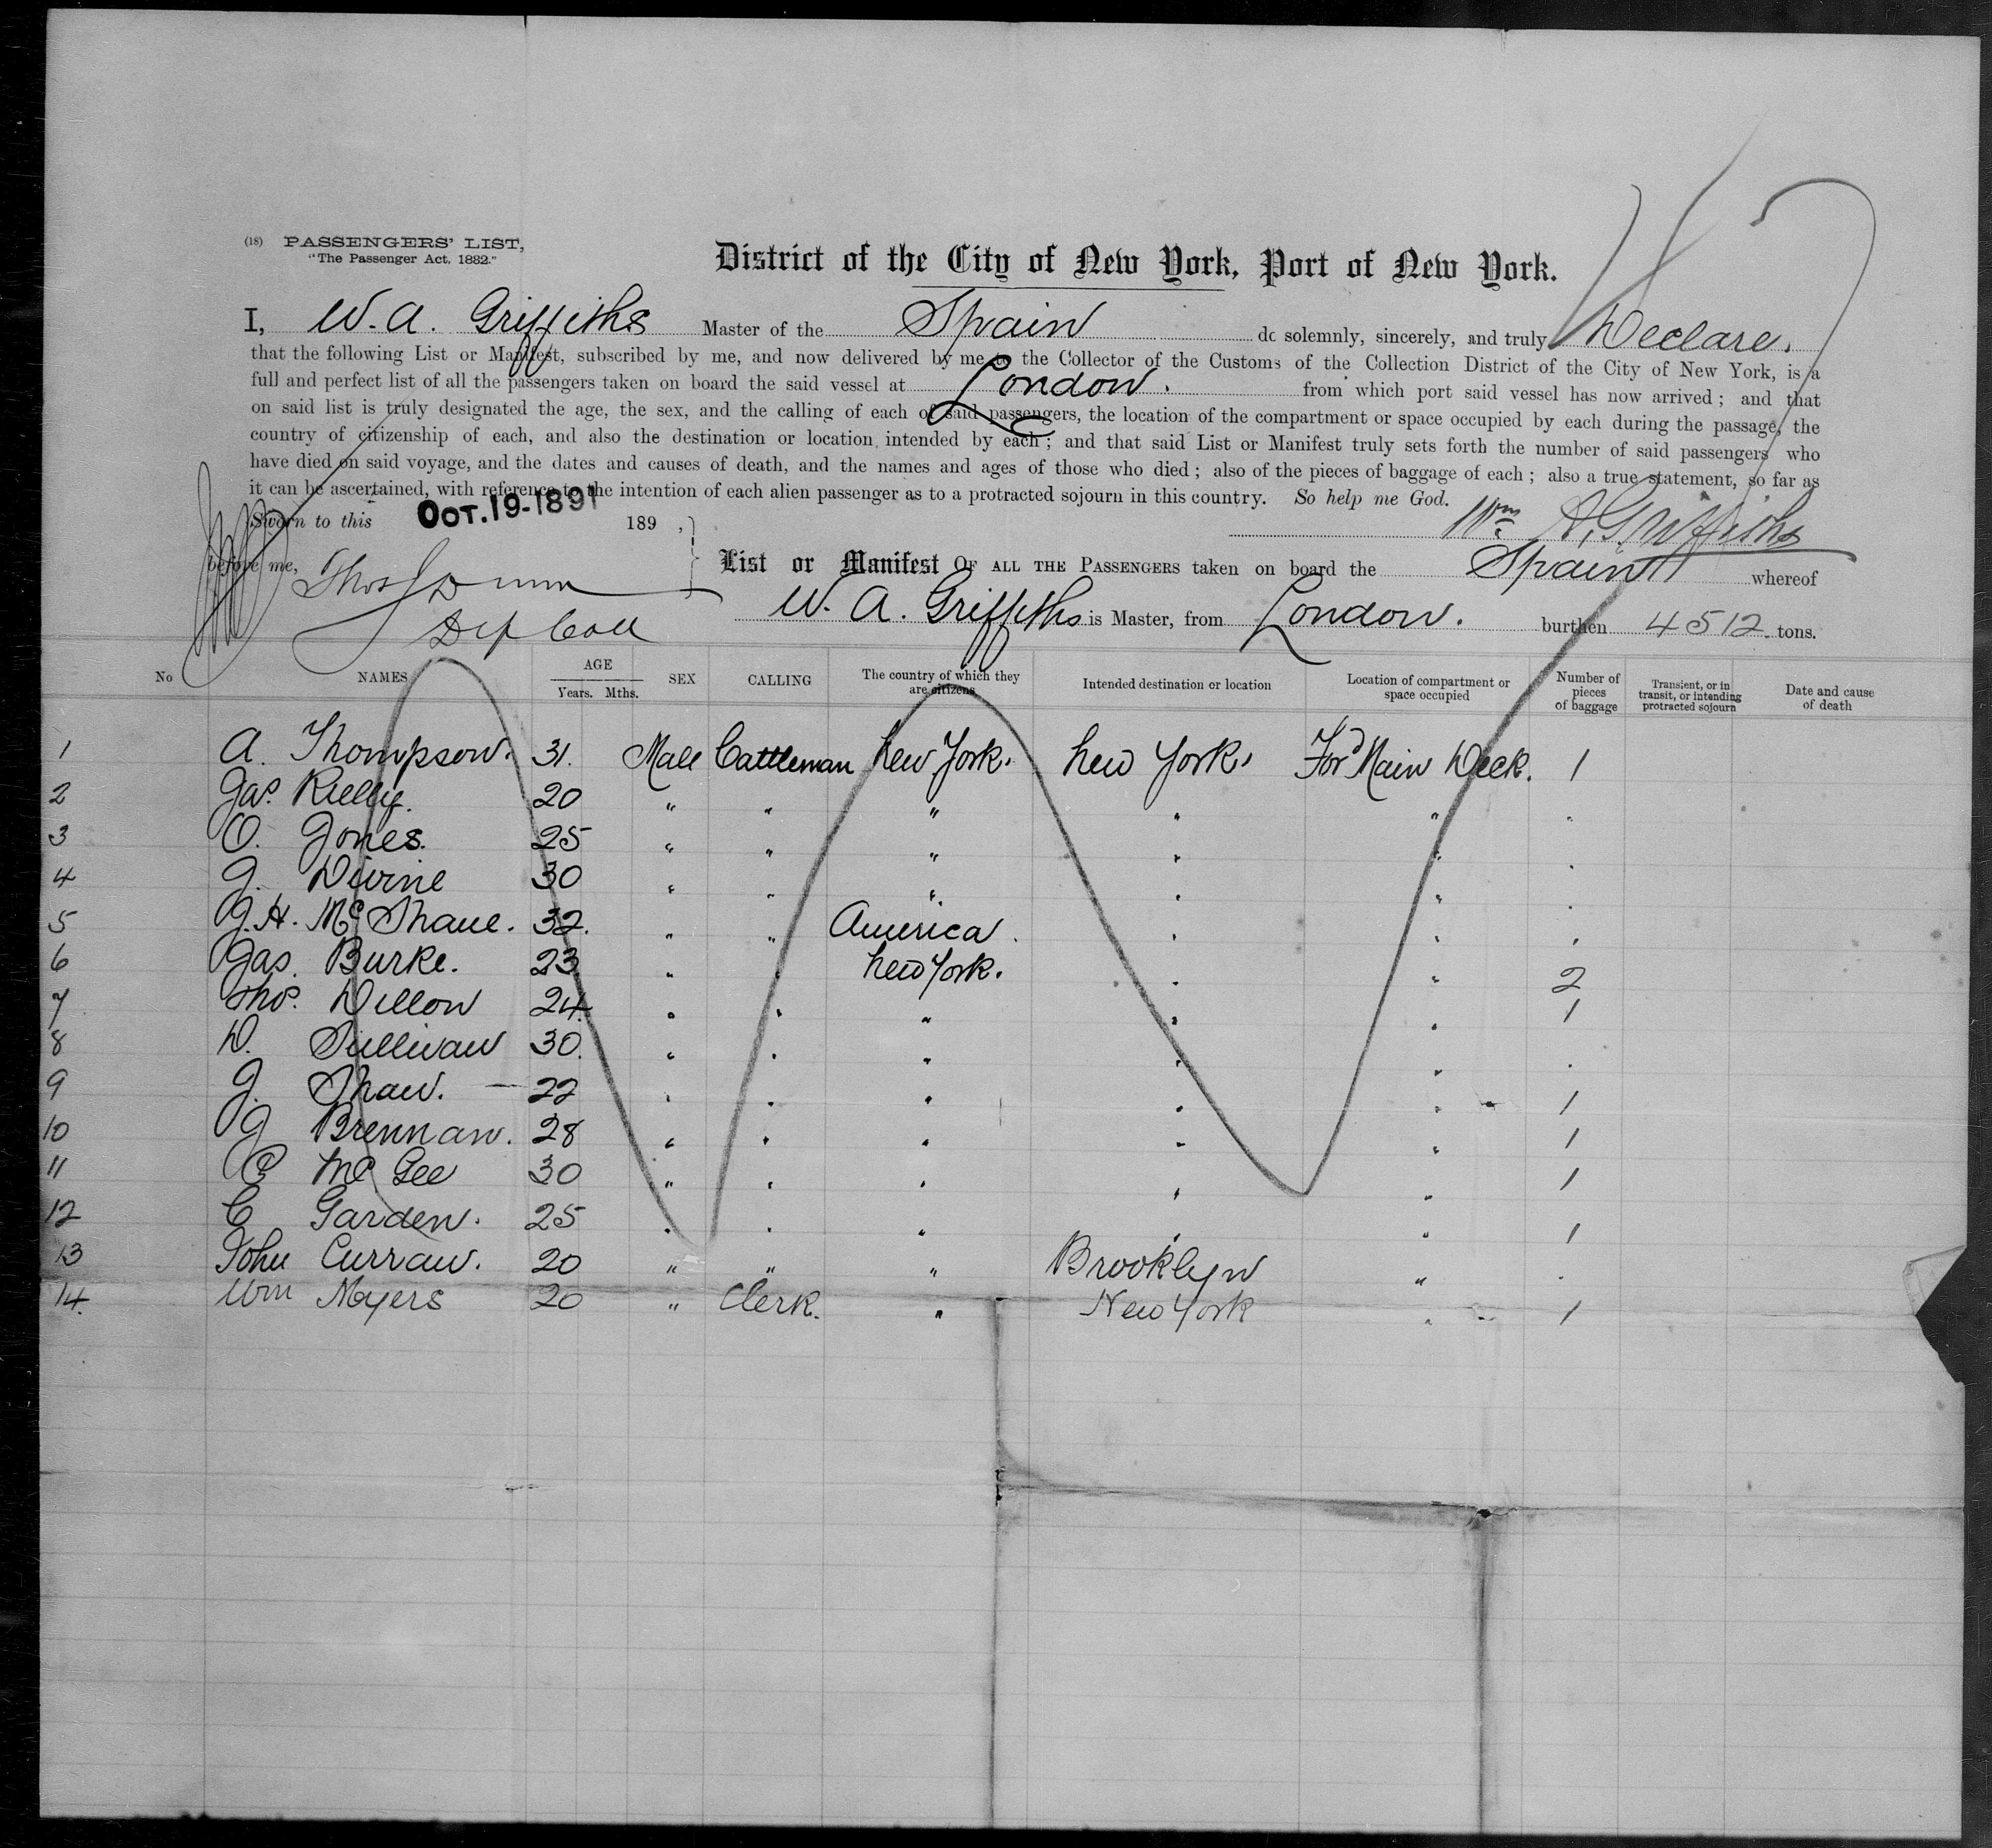 (18) PASSENGERS' LIST,
"The Passenger Act, 1882."
District of the City of New York, Port of New York.
I, W. A. Griffiths Master of the Spain do solemnly, sincerely, and truly Declare.
that the following List or Manifest, subscribed by me, and now delivered by me to the Collector of the Customs of the Collection District of the City of New York, is a
full and perfect list of all the passengers taken on board the said vessel at London. from which port said vessel has now arrived; and that
on said list is truly designated the age, the sex, and the calling of each of said passengers, the location of the compartment or space occupied by each during the passage, the
country of citizenship of each, and also the destination or location intended by each; and that said List or Manifest truly sets forth the number of said passengers who
have died on said voyage, and the dates and causes of death, and the names and ages of those who died; also of the pieces of baggage of each; also a true statement, so far as
it can be ascertained, with reference to the intention of each alien passenger as to a protracted sojourn in this country. So help me God.
Sworn to this OCT. 19-1891 189 , Wm A. Griffiths
before me, Thos
Dep Coll
List or Manifest OF ALL THE PASSENGERS taken on board the Spain whereof
W. A. Griffiths is Master, from London. burthen 4512 tons.
No NAMES AGE Years. Mths. SEX CALLING The country of which they are citizens Intended destination or location Location of compartment or space occupied Number of pieces of baggage Transient, or in transit, or intending protracted sojourn Date and cause of death
1 A. Thompson. 31. Male Cattleman New York. New York. For'd Main Deck. 1
2 Jas. Rielly. 20 " " " " " "
3 O. Jones. 25 " " " " " "
4 J. Divine 30 " " " " " "
5 J. H. McShane. 32. " " America. " " "
6 Jas. Burke. 23 " " New York. " " 2
7 Thos. Dillon 24. " " " " " 1
8 D. Sullivan 30. " " " " " "
9 J. Shaw. — 22 " " " " " 1
10 J Brennan. 28 " " " " " 1
11 P McGee 30 " " " " " 1
12 C Garden. 25 " " " " " 1
13 John Curran. 20 " " " Brooklyn " "
14. Wm Myers 20 " Clerk. " New York " 1